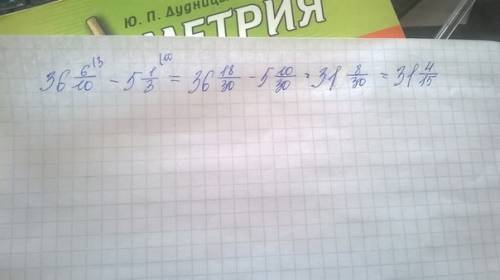 Ю. П. Дудниц
МЕТРИЯ
36 6/10 (3 - 5 1/3 (10 = 36 18/30 - 5 10/30 = 31 8/30 = 31 4/15